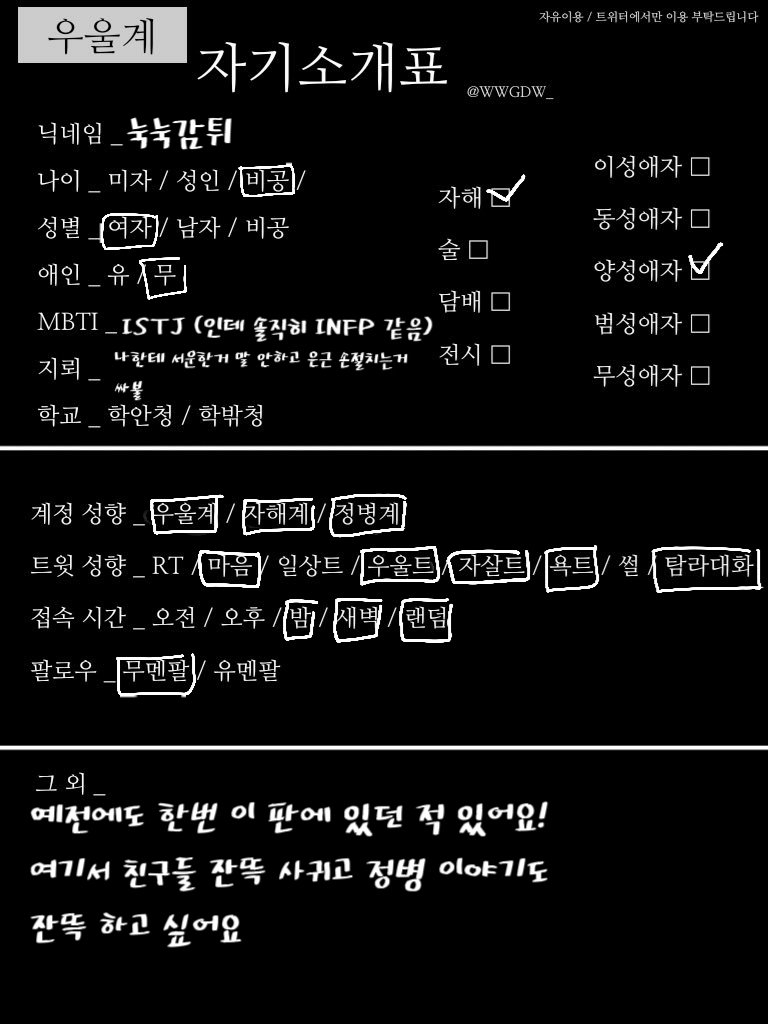 우울계
자유이용 / 트위터에서만 이용 부탁드립니다
자기소개표
@WWGDW_
닉네임 _ 눅눅감튀
나이 _ 미자 / 성인 / 비공 /
성별 _ 여자 / 남자 / 비공
애인 _ 유 / 무
MBTI _ ISTJ (인데 솔직히 INFP 같음)
지뢰 _ 나한테 서운한거 말 안하고 은근 손절치는거
싸불
학교 _ 학안청 / 학밖청
자해 ☑
술 □
담배 □
전시 □
이성애자 □
동성애자 □
양성애자 ☑
범성애자 □
무성애자 □
계정 성향 _ 우울계 / 자해계 / 정병계
트윗 성향 _ RT / 마음 / 일상트 / 우울트 / 자살트 / 욕트 / 썰 / 탐라대화
접속 시간 _ 오전 / 오후 / 밤 / 새벽 / 랜덤
팔로우 _ 무멘팔 / 유멘팔
그 외 _
예전에도 한번 이 판에 있던 적 있어요!
여기서 친구들 잔뜩 사귀고 정병 이야기도
잔뜩 하고 싶어요